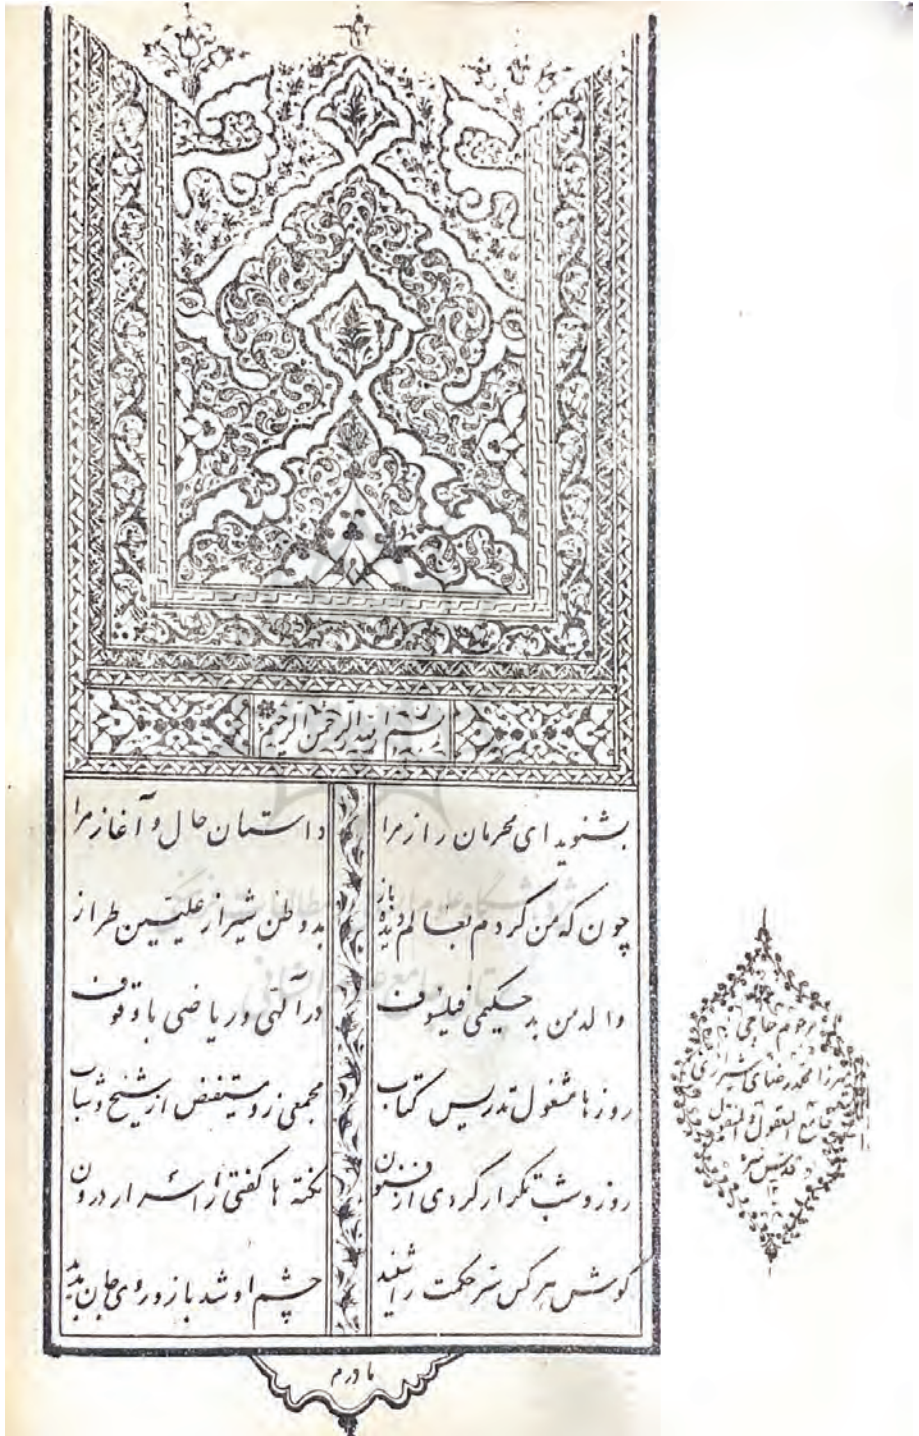 بسم الله الرحمن الرحیم
بشنوید ای محرمان راز مرا داستان حال و آغاز مرا
چون که من کردم بعالم دیده باز بد وطن شیراز علیین طراز
والد من بد حکیمی فیلسوف در آلهی در ریاضی با وقوف
روزها مشغول تدریس کتاب مجمعی زو مستفیض از شیخ و شاب
روز و شب تکرار کردی از فنون نکته ها گفتی ز اسرار درون
گوش هر کس سر حکمت را شنید چشم او شد باز و روی جان بدید
مادرم
مرحوم حاجی
میرزا محمد رضای شیرازی
جامع المعقول و المنقول
قدس سره
۱۲
پژوهشگاه علوم انسانی و مطالعات فرهنگی
پرتال جامع علوم انسانی